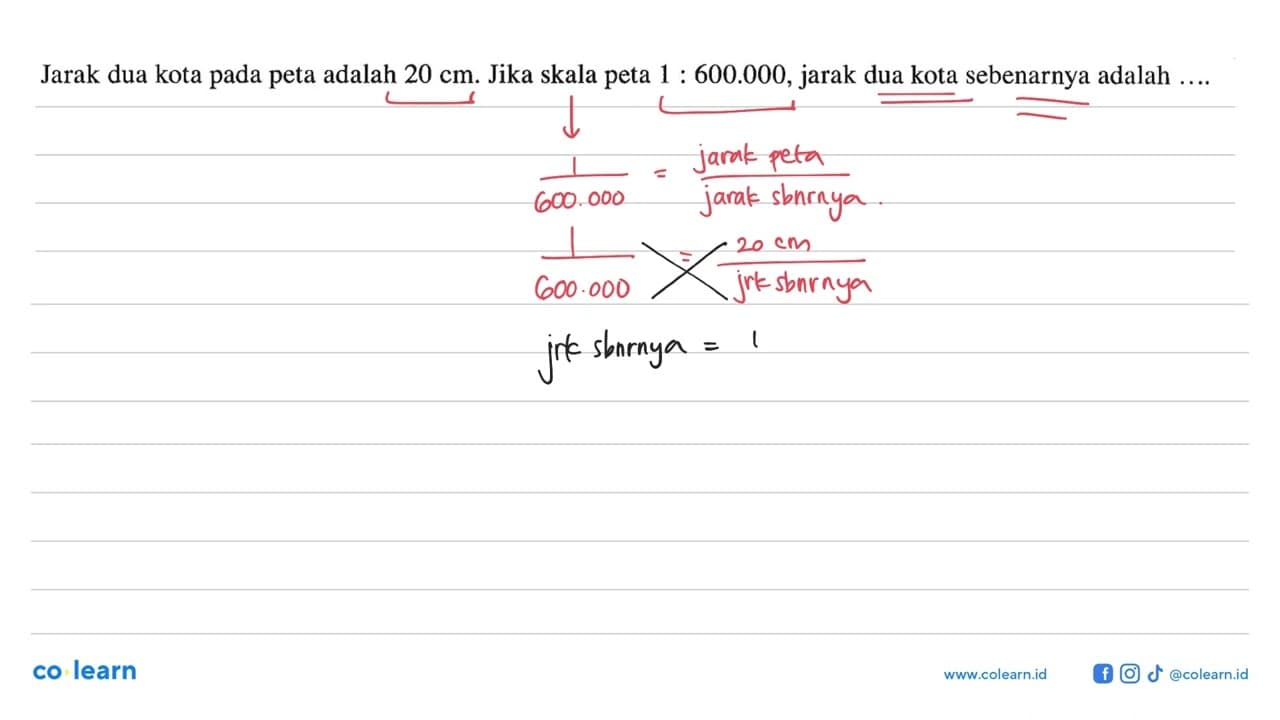 Jarak dua kota pada peta adalah 20 cm. Jika skala peta 1 : 600.000, jarak dua kota sebenarnya adalah ....
1 = jarak peta
600.000 jarak sbnrnya.
1 = 20 cm
600.000 jrk sbnrnya
jrk sbnrnya = 1
co learn
www.colearn.id @colearn.id